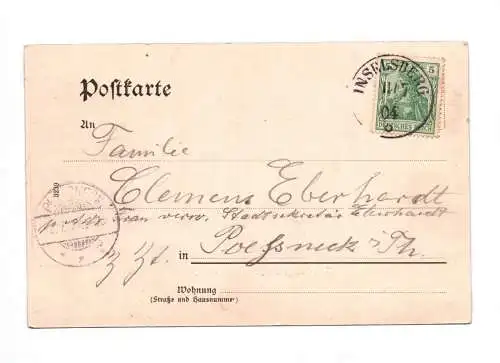 Postkarte
INSELSBERG
11/7
04
5
DEUTSCHES REICH
An
Familie
Clemens Eberhardt
verw. Stadtsekretär Eberhardt
Poessneck i/Th.
z. Zt. in
Wohnung
(Straße und Hausnummer)